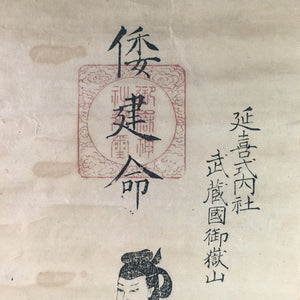 倭建命
延喜式内社
武蔵國御嶽山